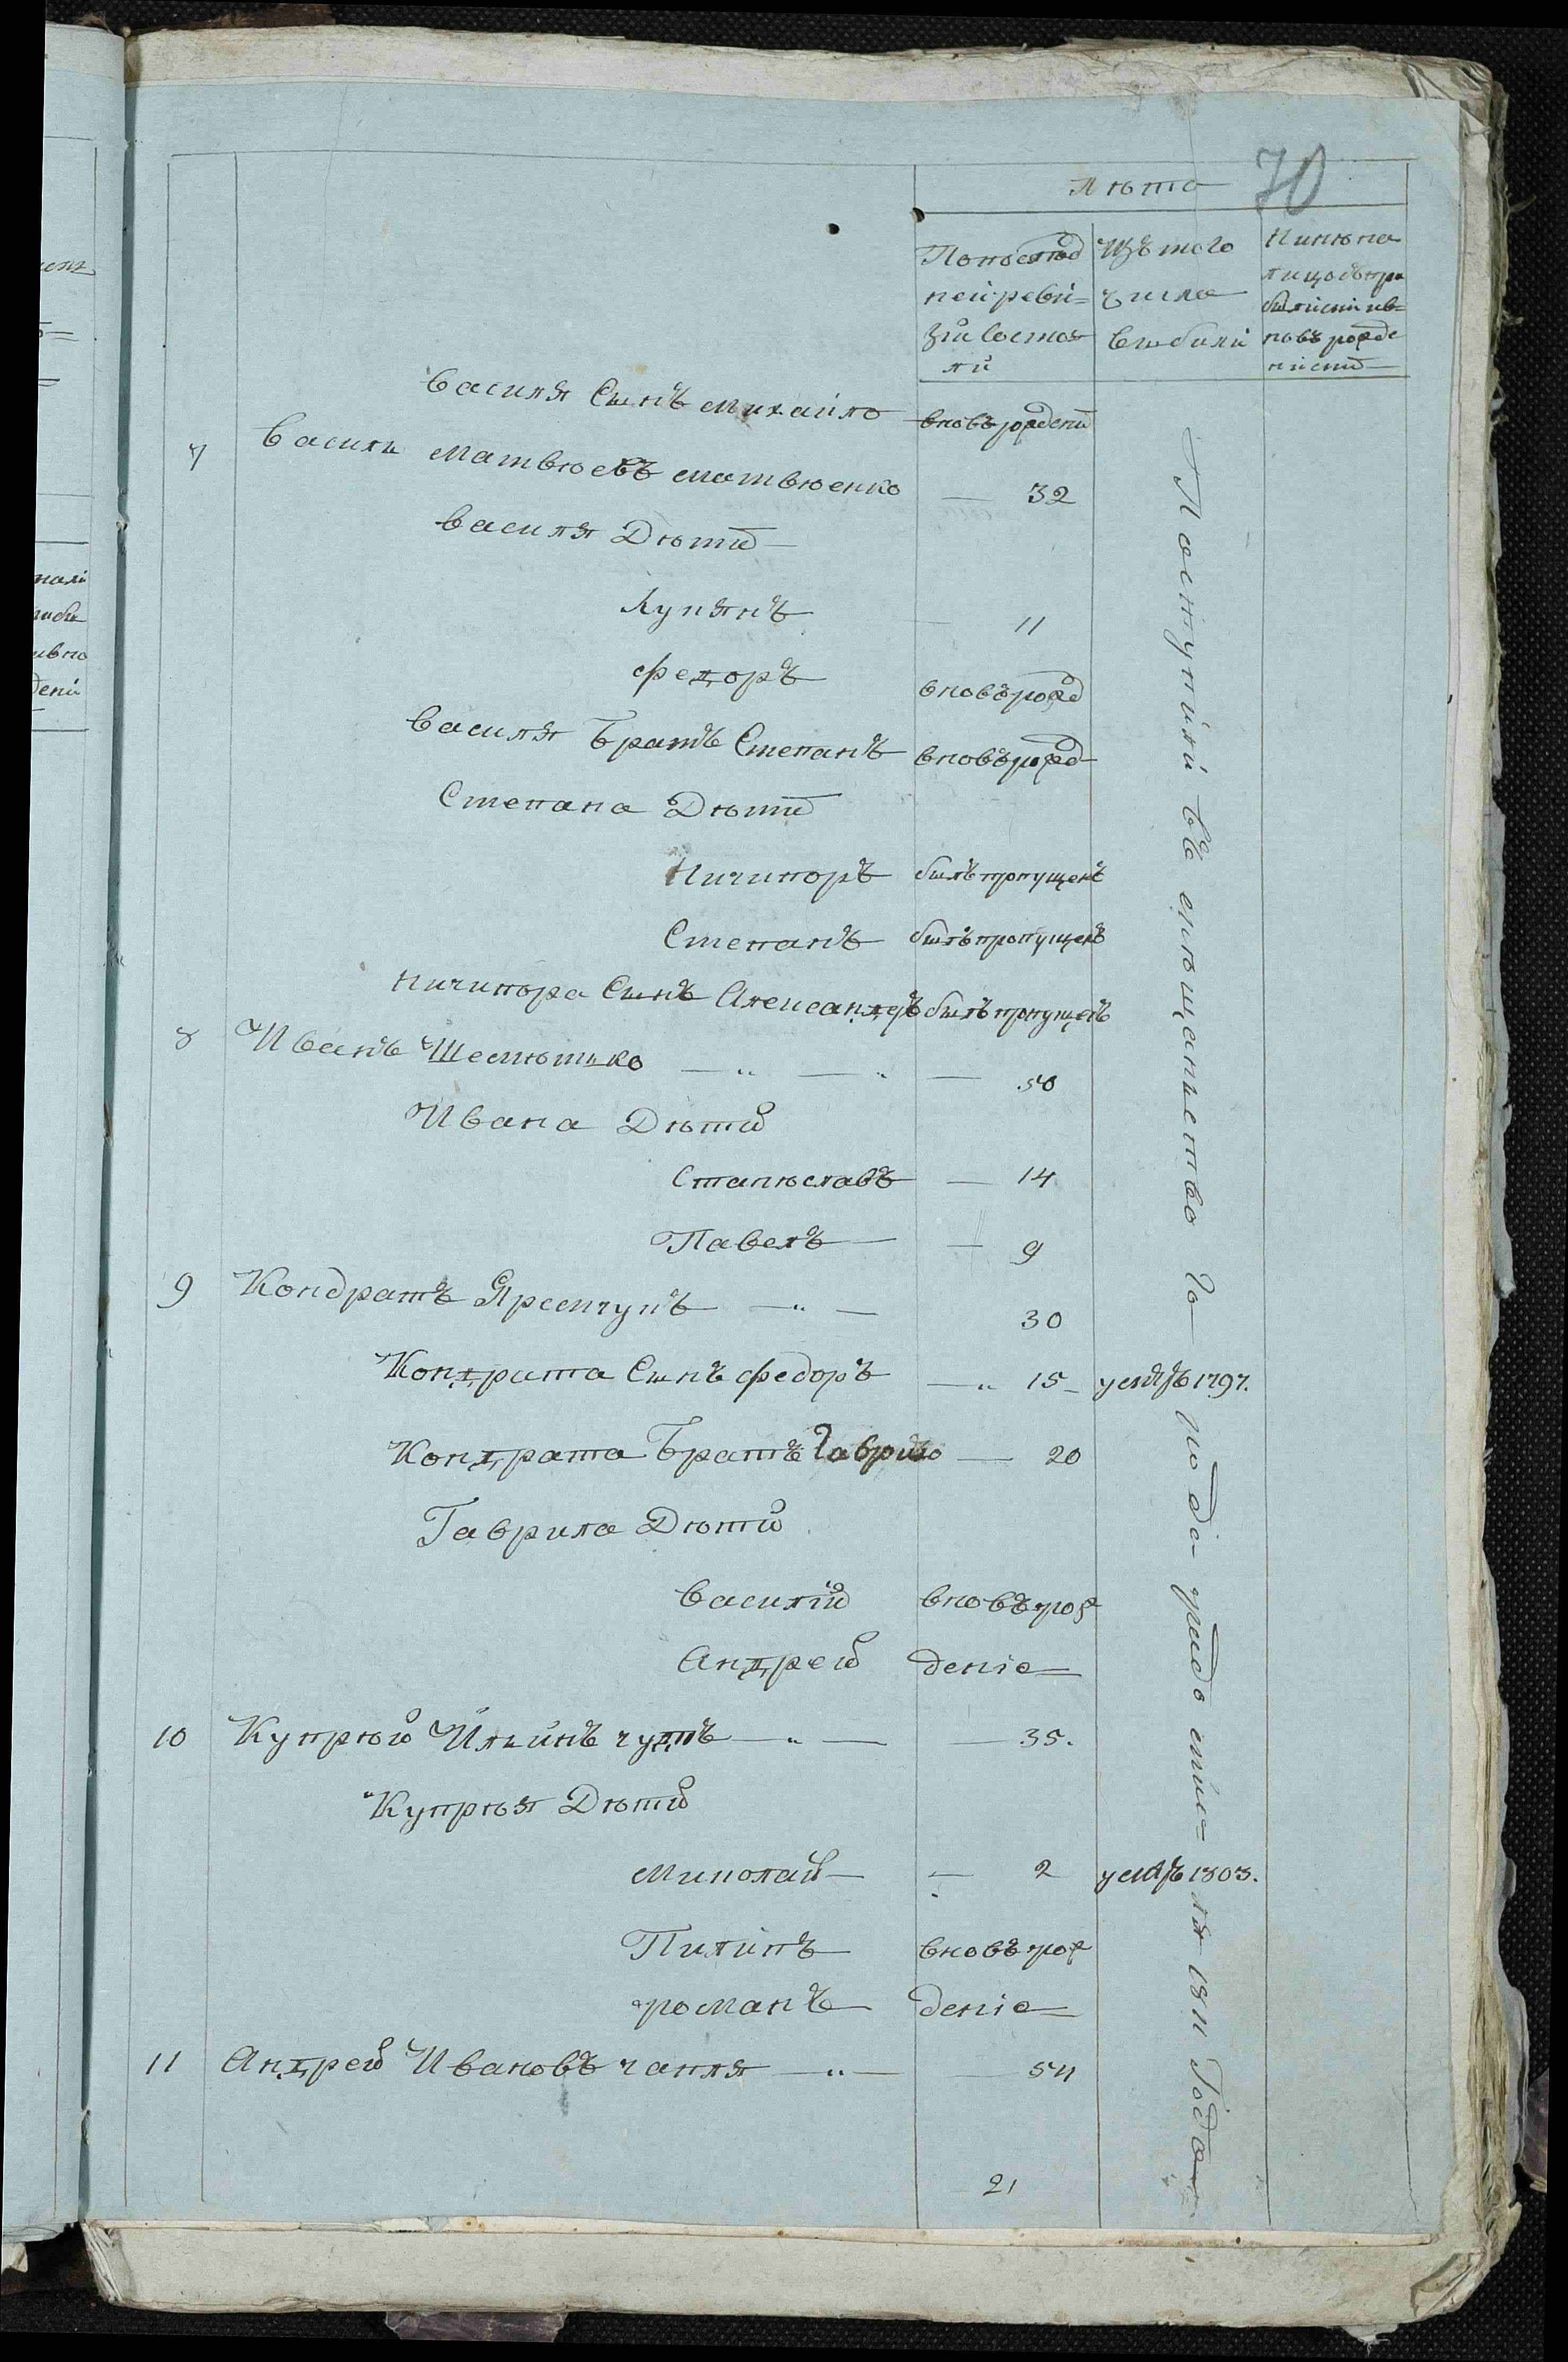 70
лѣта
По последней ревизiи состояли
Изъ того числа выбыли
Ныне на лицо съ прибылыми и вновь рожденными
Василя Сынъ Михайло вновь рожденый
7 Василь Матвѣевъ Матвѣенко — 32
Василя Дѣти
Лукянъ — 11
Федоръ вновь рожд
Василя Братъ Степанъ вновь рожд
Степана Дѣти
Ничипоръ былъ пропущенъ
Степанъ былъ пропущенъ
Ничипора Сынъ Александръ былъ пропущенъ
8 Иванъ — 50
Ивана Дѣти
Станѣславъ — 14
Павелъ — 9
9 Кондратъ 30
Кондрата Сынъ Федоръ — 15 умѣръ 1797.
Кондрата Братъ Гаврило — 20
Гаврила Дѣти
Василiй вновь рож
Андрей денiе
10 Купрѣй Ильинъ — 35.
Купрѣя Дѣти
Миколай — 2 умѣръ 1803.
Пилипъ вновь рож
романъ денiе
11 Андрей Ивановъ чапля — 54
21
Поступили въ
1811 Года